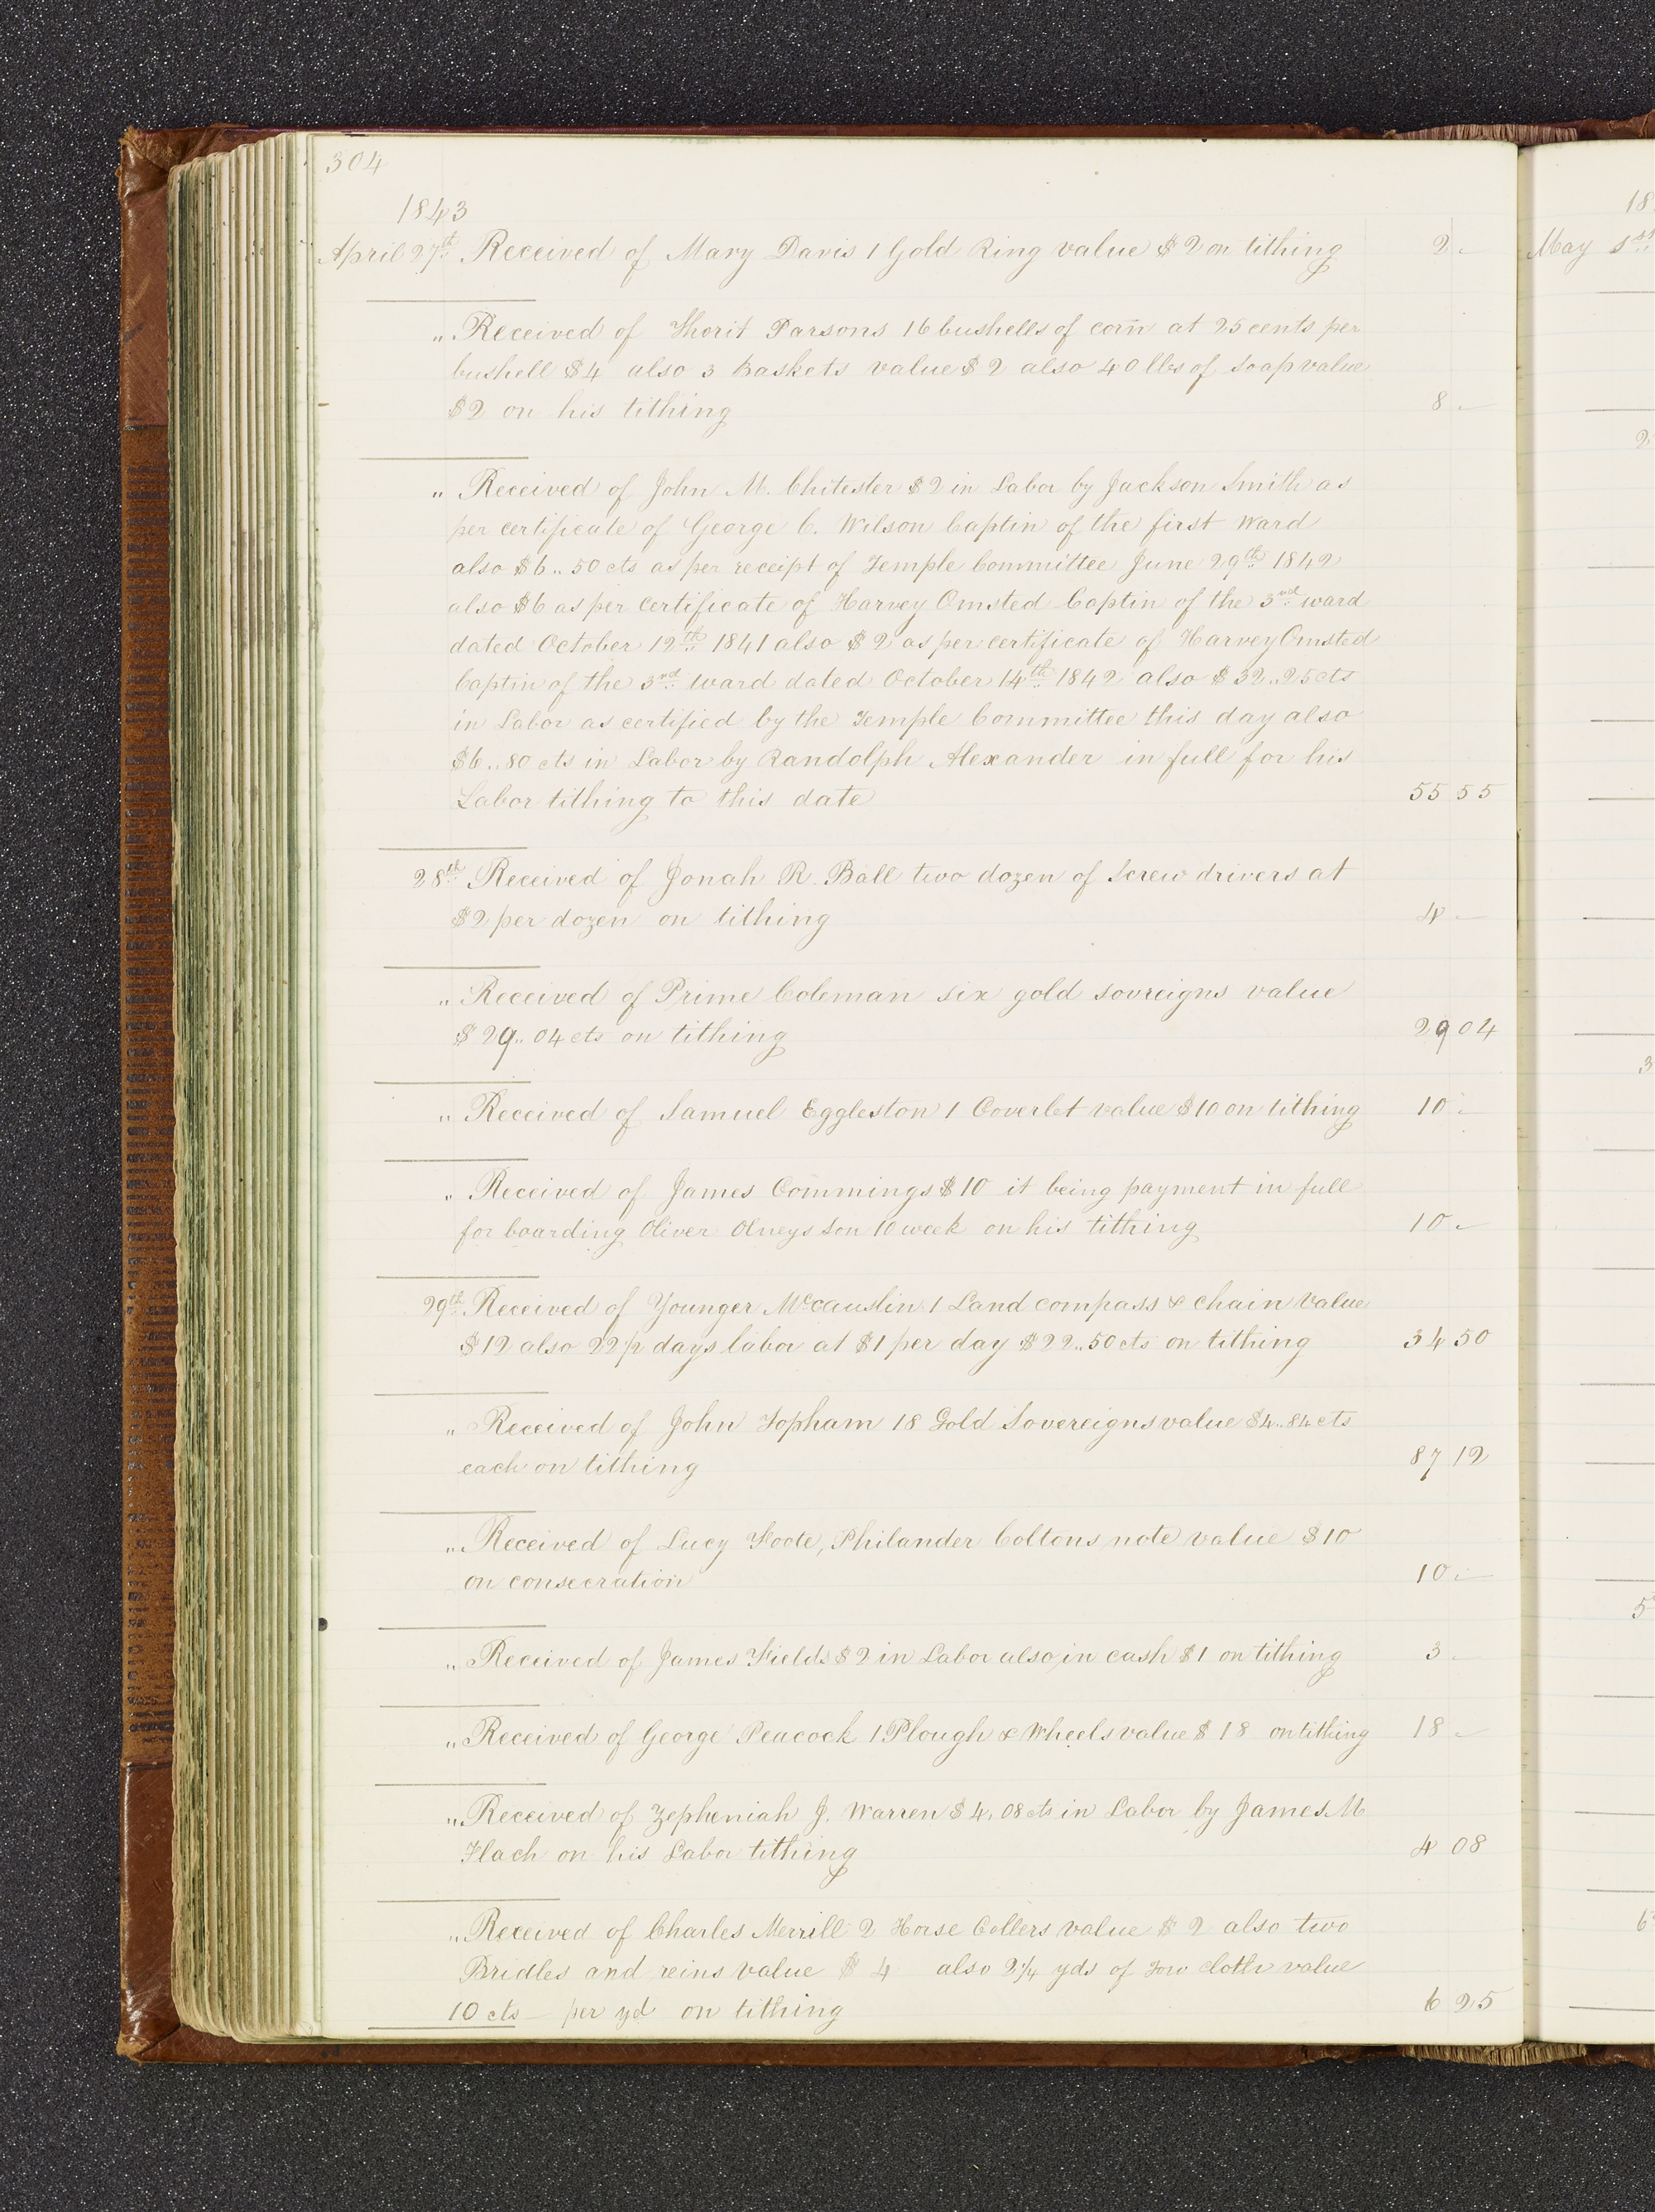 304
1843
April 27th Received of Mary Davis 1 Gold Ring value $2 on tithing 2 -
" Received of Thorit Parsons 16 bushells of corn at 25 cents per
bushell $4 also 3 Baskets value $2 also 40 lbs of Soap value
$2 on his tithing 8 -
" Received of John M. Chitester $2 in Labor by Jackson Smith as
per certificate of George C. Wilson Captin of the first Ward
also $6..50 cts as per receipt of Temple Committee June 29th 1842
also $6 as per certificate of Harvey Omsted Captin of the 3rd ward
dated October 12th 1841 also $2 as per certificate of Harvey Omsted
Captin of the 3rd Ward dated October 14th 1842 also $32..25 cts
in Labor as certified by the Temple Committee this day also
$6..80 cts in Labor by Randolph Alexander in full for his
Labor tithing to this date 55 55
28th Received of Jonah R. Ball two dozen of Screw drivers at
$2 per dozen on tithing 4 -
" Received of Prime Coleman six gold sovreigns value
$29..04 cts on tithing 29 04
" Received of Samuel Eggleston 1 Coverlet value $10 on tithing 10 -
" Received of James Commings $10 it being payment in full
for boarding Oliver Olneys Son 10 week on his tithing 10 -
29th Received of Younger McCauslin 1 Land compass & chain Value
$12 also 22 1/2 days labor at $1 per day $22..50 cts on tithing 34 50
" Received of John Topham 18 Gold Sovereigns value $4..84 cts
each on tithing 87 12
" Received of Lucy Foote, Philander Coltons note value $10
on consecration 10 -
" Received of James Fields $2 in Labor also in cash $1 on tithing 3 -
" Received of George Peacock 1 Plough & Wheels value $18 on tithing 18 -
" Received of Zepheniah J. Warren $4.08 cts in Labor by James M
Flach on his Labor tithing 4 08
" Received of Charles Merrill 2 Horse Collers value $2 also two
Bridles and reins value $4 also 2 1/4 yds of Tow cloth value
10 cts - per yd on tithing 6 25
18
May 1st
2
3
5
6